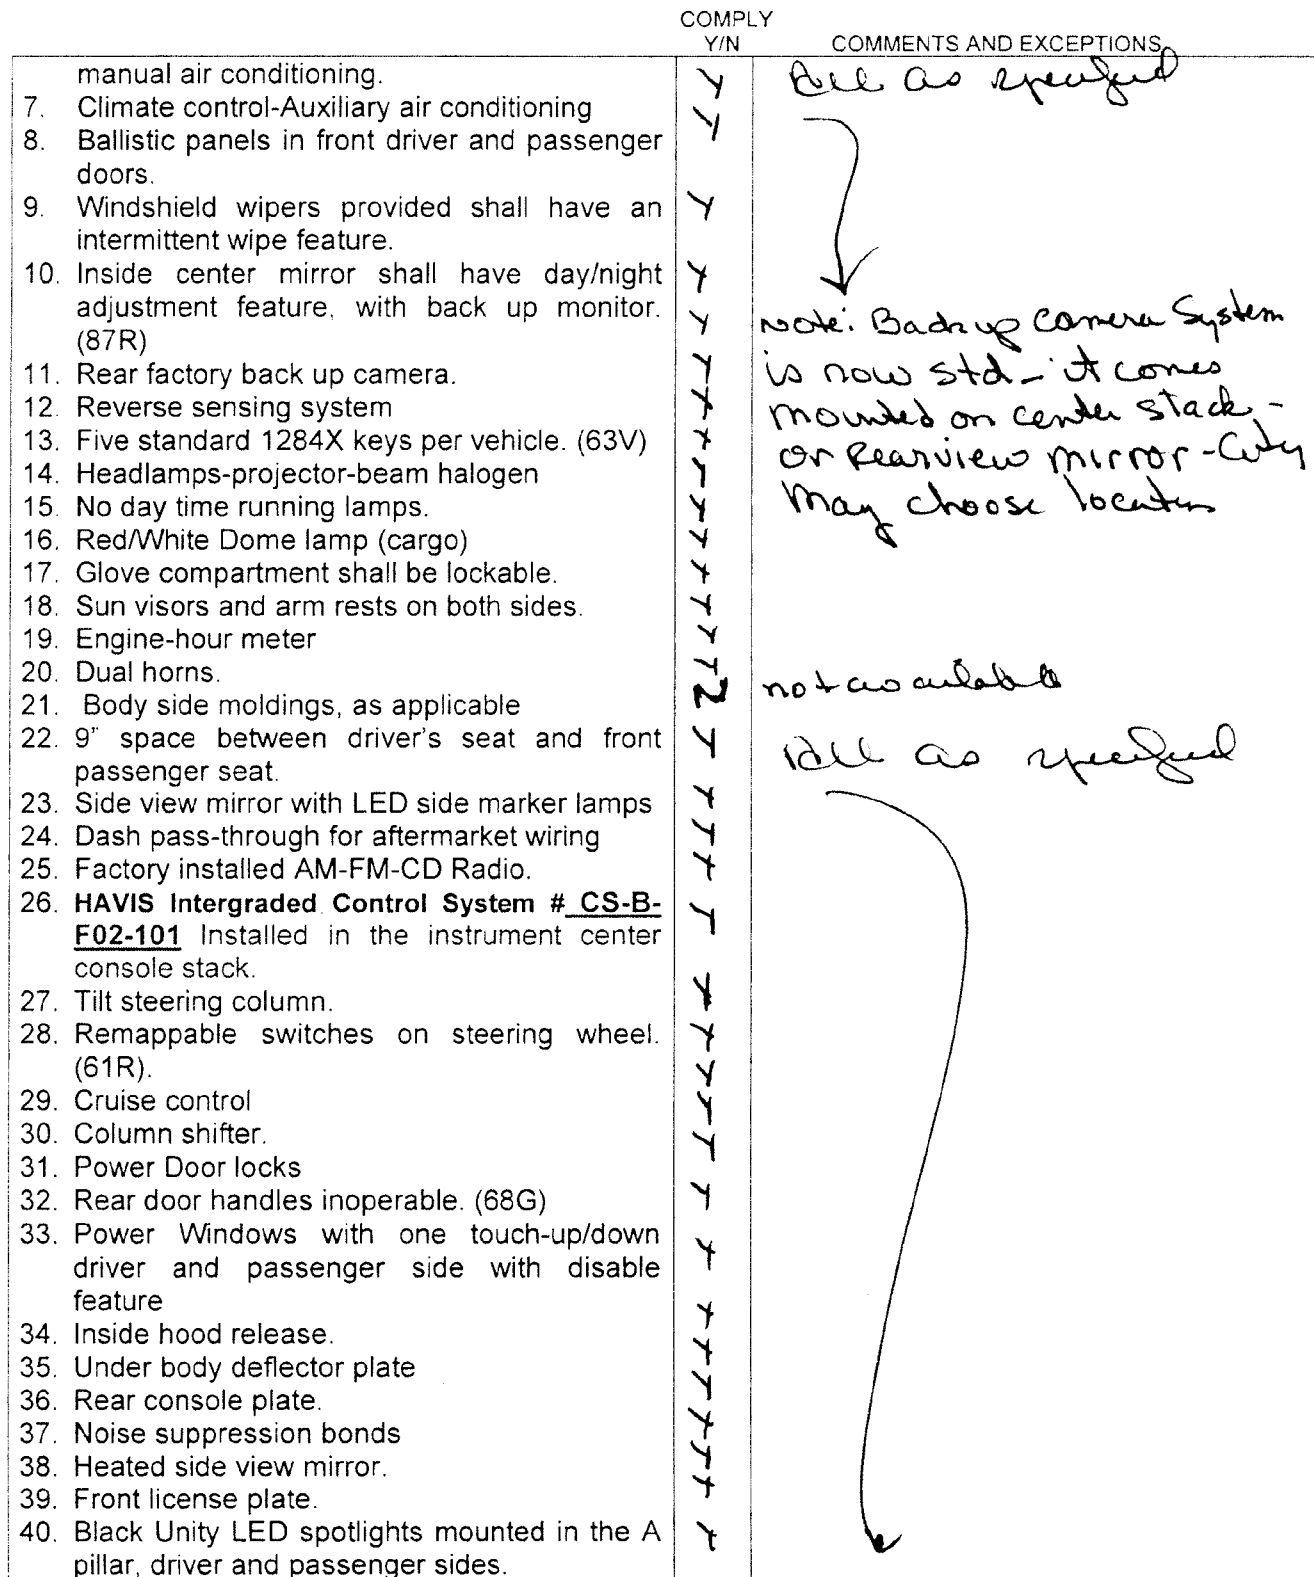 COMPLY
Y/N COMMENTS AND EXCEPTIONS
manual air conditioning. Y All as specified
7. Climate control-Auxiliary air conditioning Y
8. Ballistic panels in front driver and passenger
doors.
9. Windshield wipers provided shall have an Y
intermittent wipe feature.
10. Inside center mirror shall have day/night Y
adjustment feature, with back up monitor. Y Note: Backup Camera System
(87R)
11. Rear factory back up camera. Y is now std - it comes
12. Reverse sensing system Y mounted on center stack -
13. Five standard 1284X keys per vehicle. (63V) Y or Rearview mirror - City
14. Headlamps-projector-beam halogen Y
15. No day time running lamps. Y may choose location
16. Red/White Dome lamp (cargo) Y
17. Glove compartment shall be lockable. Y
18. Sun visors and arm rests on both sides. Y
19. Engine-hour meter Y
20. Dual horns. Y
21. Body side moldings, as applicable N not available
22. 9" space between driver's seat and front Y All as specified
passenger seat.
23. Side view mirror with LED side marker lamps Y
24. Dash pass-through for aftermarket wiring Y
25. Factory installed AM-FM-CD Radio. Y
26. HAVIS Intergraded Control System # CS-B- Y
F02-101 Installed in the instrument center
console stack.
27. Tilt steering column. Y
28. Remappable switches on steering wheel. Y
(61R). Y
29. Cruise control Y
30. Column shifter. Y
31. Power Door locks
32. Rear door handles inoperable. (68G) Y
33. Power Windows with one touch-up/down
driver and passenger side with disable Y
feature
34. Inside hood release. Y
35. Under body deflector plate Y
36. Rear console plate. Y
37. Noise suppression bonds Y
38. Heated side view mirror. Y
39. Front license plate. Y
40. Black Unity LED spotlights mounted in the A Y
pillar, driver and passenger sides.